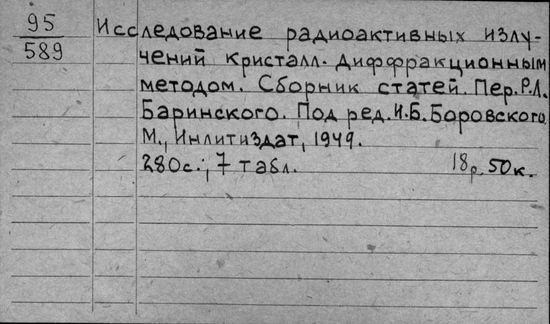 95
589
Исследование радиоактивных излу-
чений кристалл. диффракционным
методом. Сборник статей. Пер. Р.Л.
Баринского. Под ред. И.Б. Боровского
М., Инлитиздат, 1949.
280с.; 7 табл. 18р. 50к.